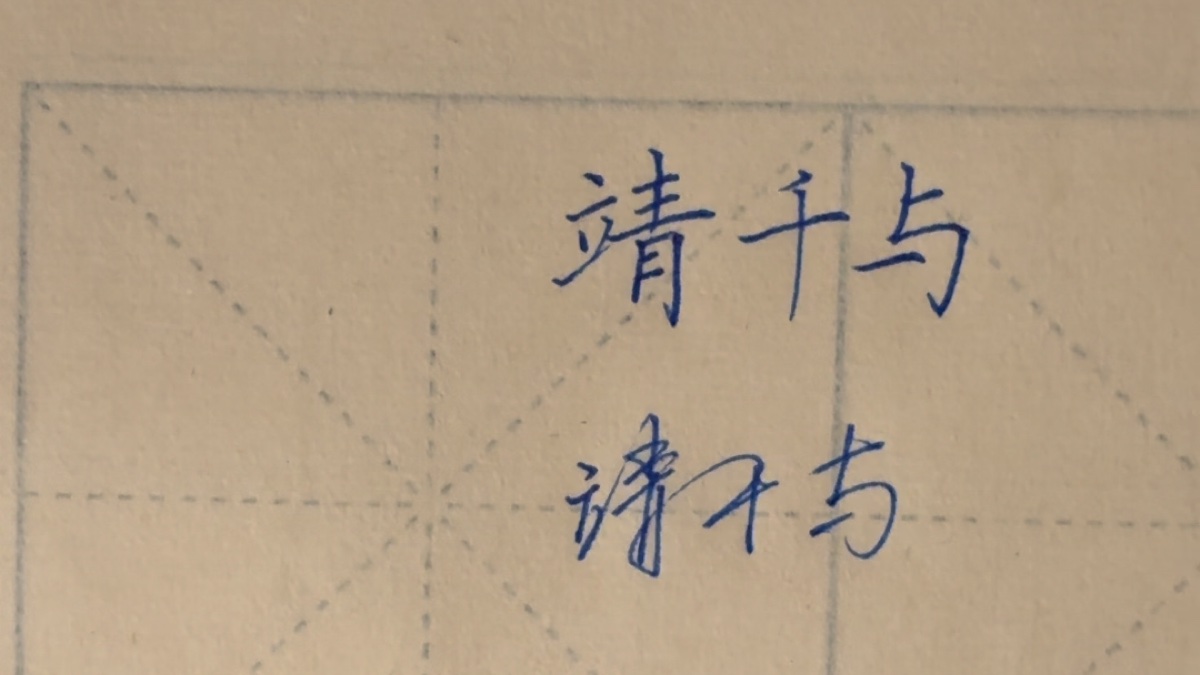 靖千与
靖千与